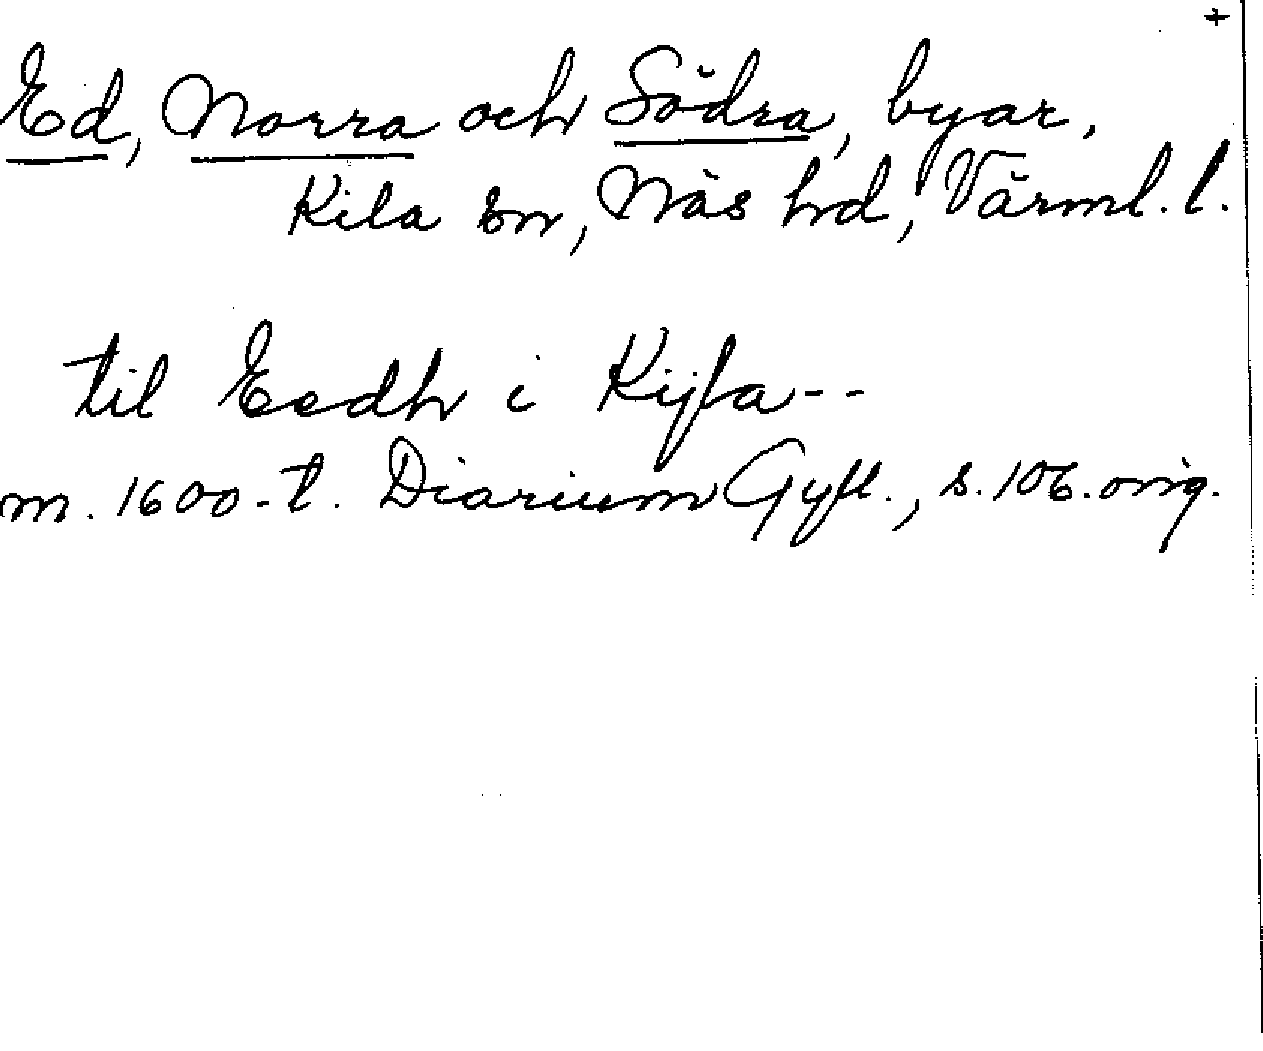 +
Ed, Norra och Södra, byar,
Kila sn, Näs hd, Värml. l.
til Eedh i Kijla--
m. 1600-t. Diarium Gyll., s. 106. orig.